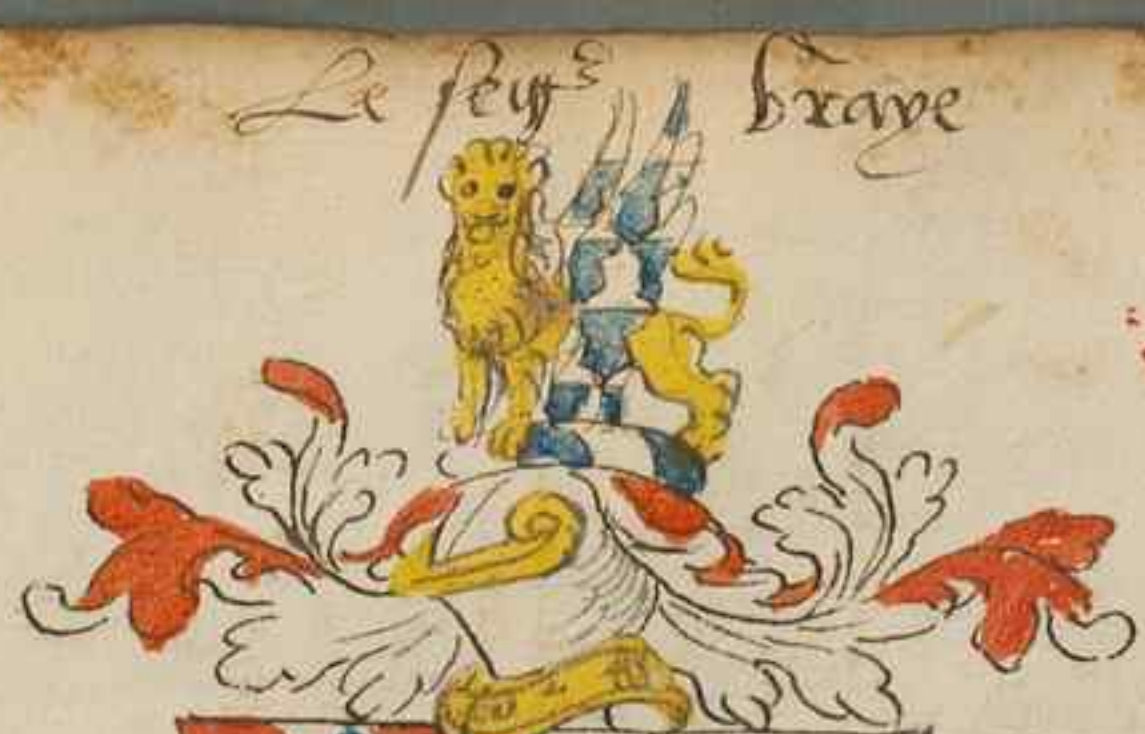 Le seigr braye